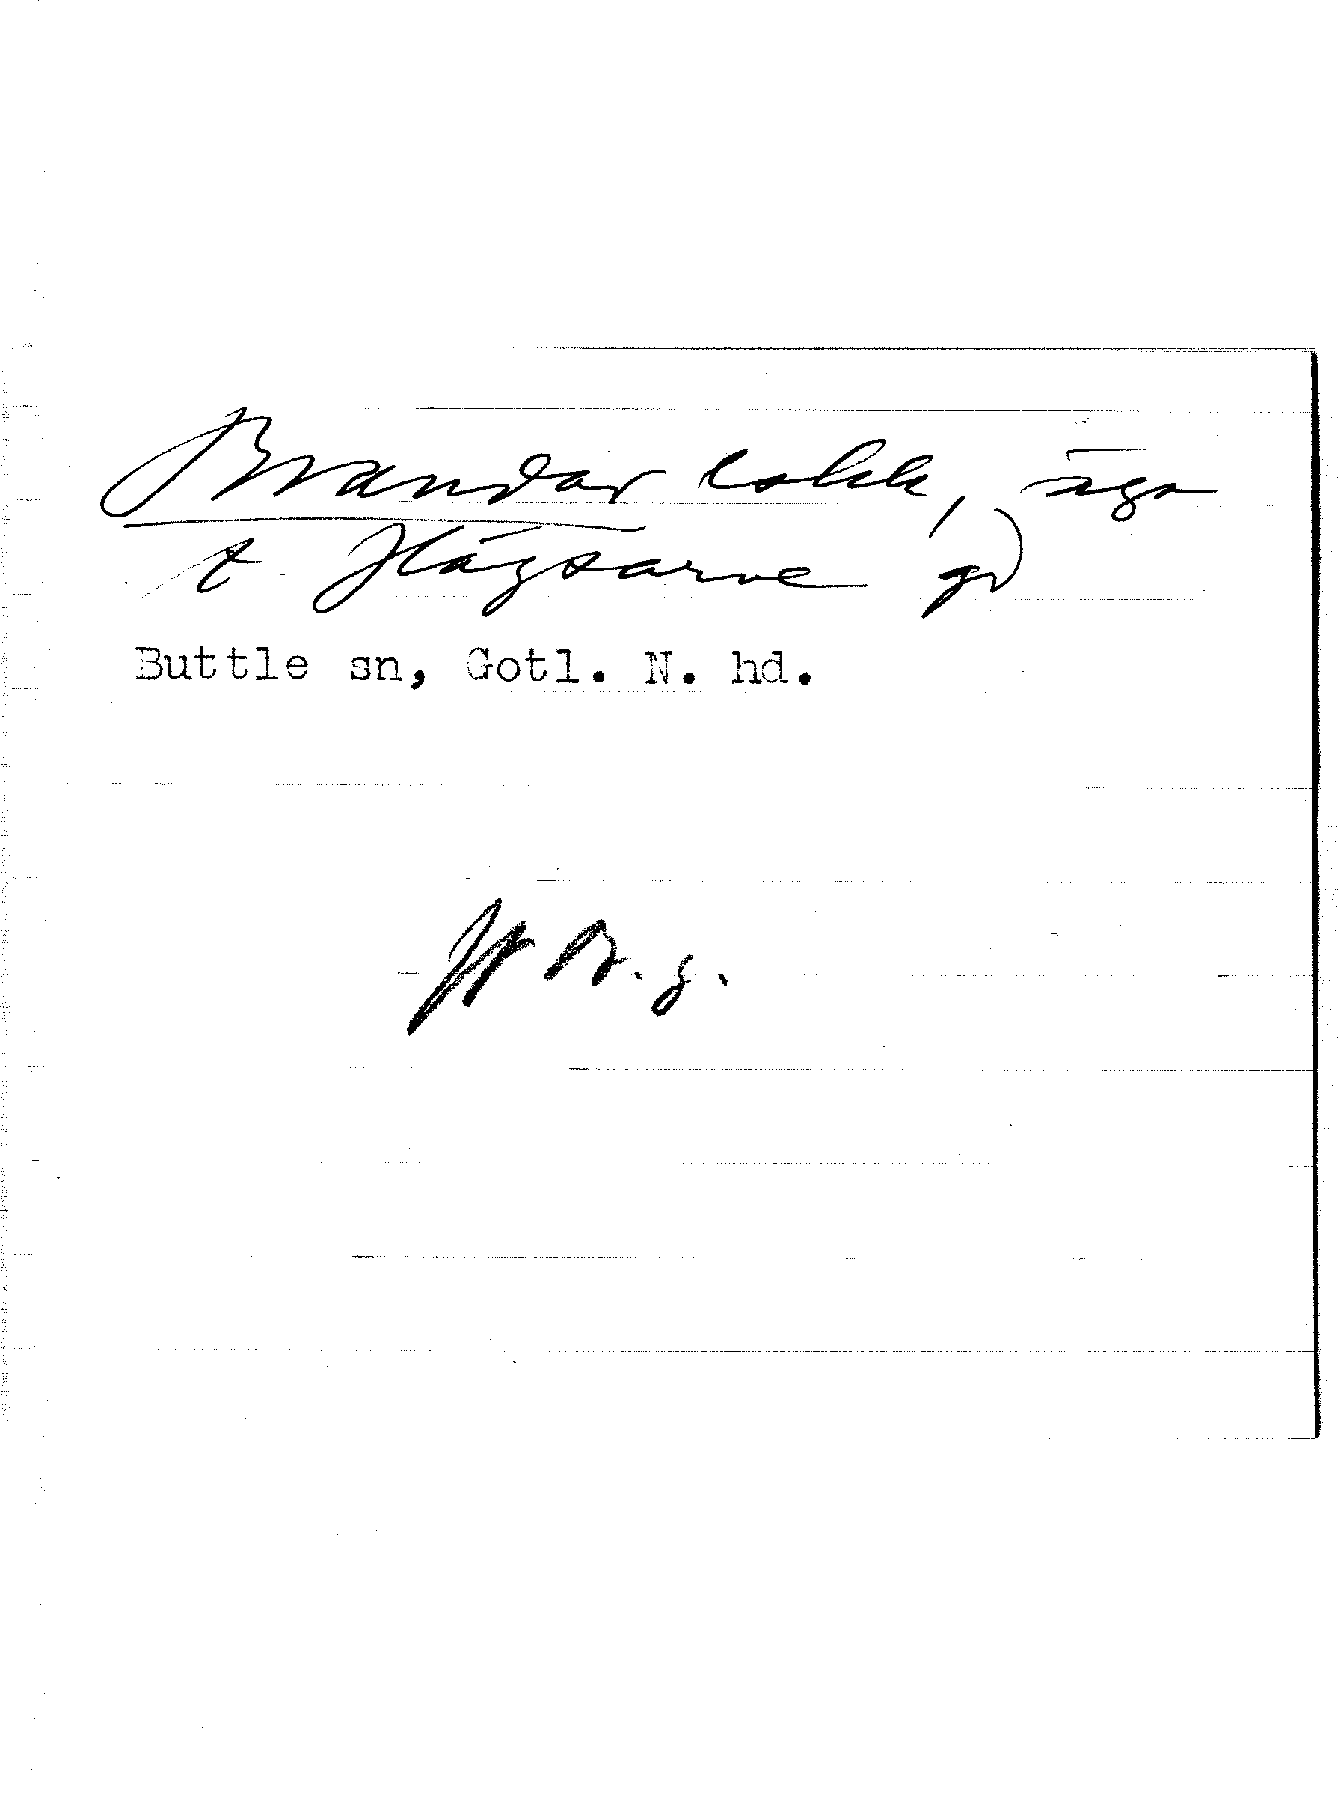 Brandar lokk, äga
t Hägsarve gd
Buttle sn, Gotl. N. hd.